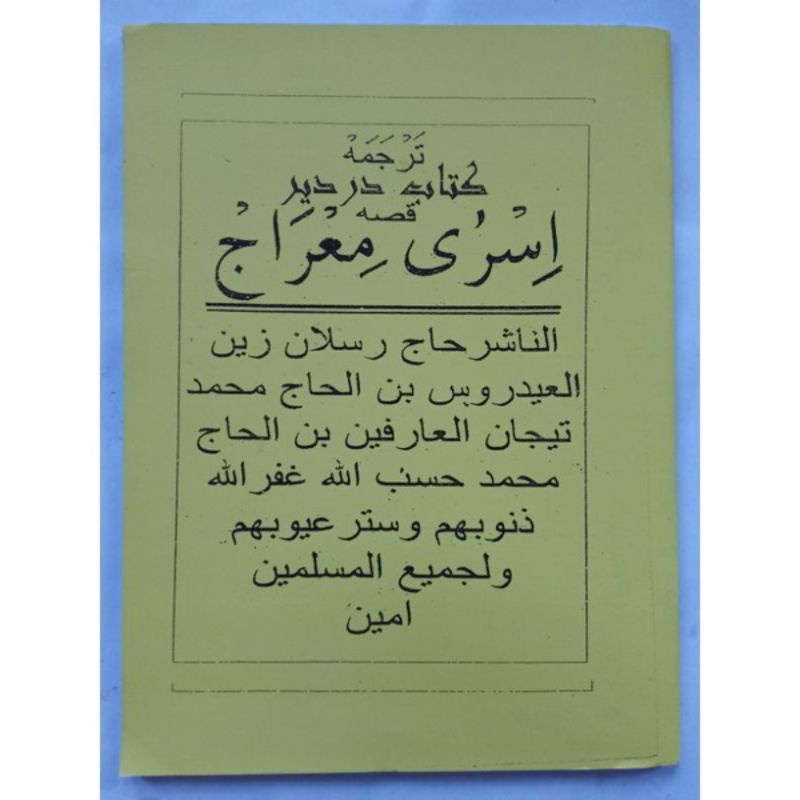 تَرْجَمَهْ
كتاب دردير
قصه
اِسْرٰى مِعْرَاجْ
الناشرحاج رسلان زين
العيدروس بن الحاج محمد
تيجان العارفين بن الحاج
محمد حسب الله غفر الله
ذنوبهم وستر عيوبهم
ولجميع المسلمين
امين